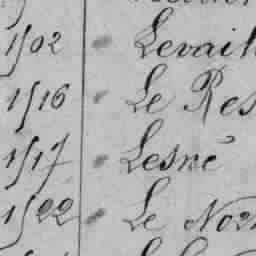 1502 Levail
1516 Le Res
1517 Lesné
1522 Le Nor